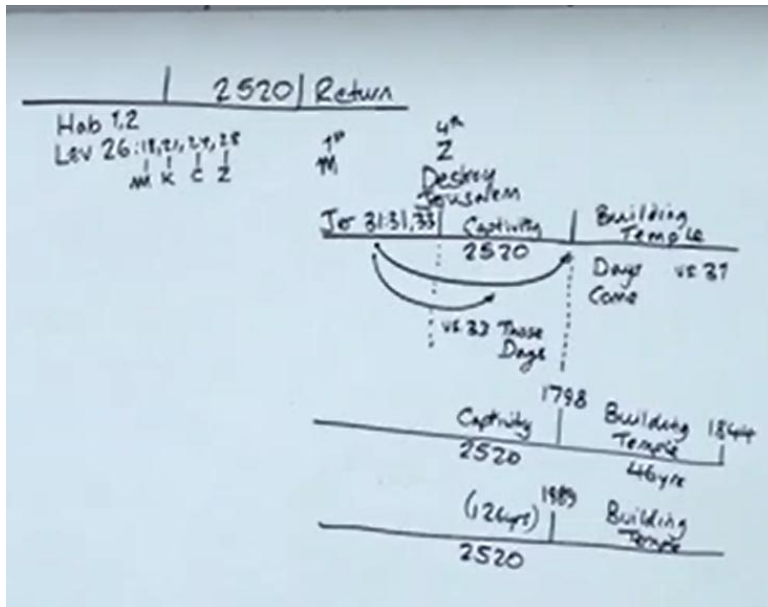 2520 Return
Hab 1,2
Lev 26:18,21,24,28
M K C Z
1st
M
4th
Z
Destroy
Jerusalem
Jer 31:31,33 Captivity
2520
Building
Temple
Days vs 31
Come
vs 33 Those
Days
1798
Captivity
2520
Building
Temple
1844
46yrs
(126yrs) 1989
2520
Building
Temple